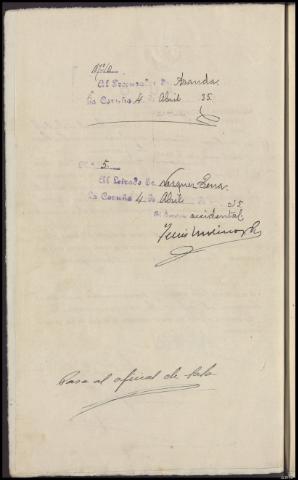 Al Procurador Sr. Aranda.
La Coruña 4 de Abril 35.
5.
Al Letrado Sr. Vazquez Pena.
La Coruña 4 de Abril 35.
accidental
Pasa al oficial de Sala